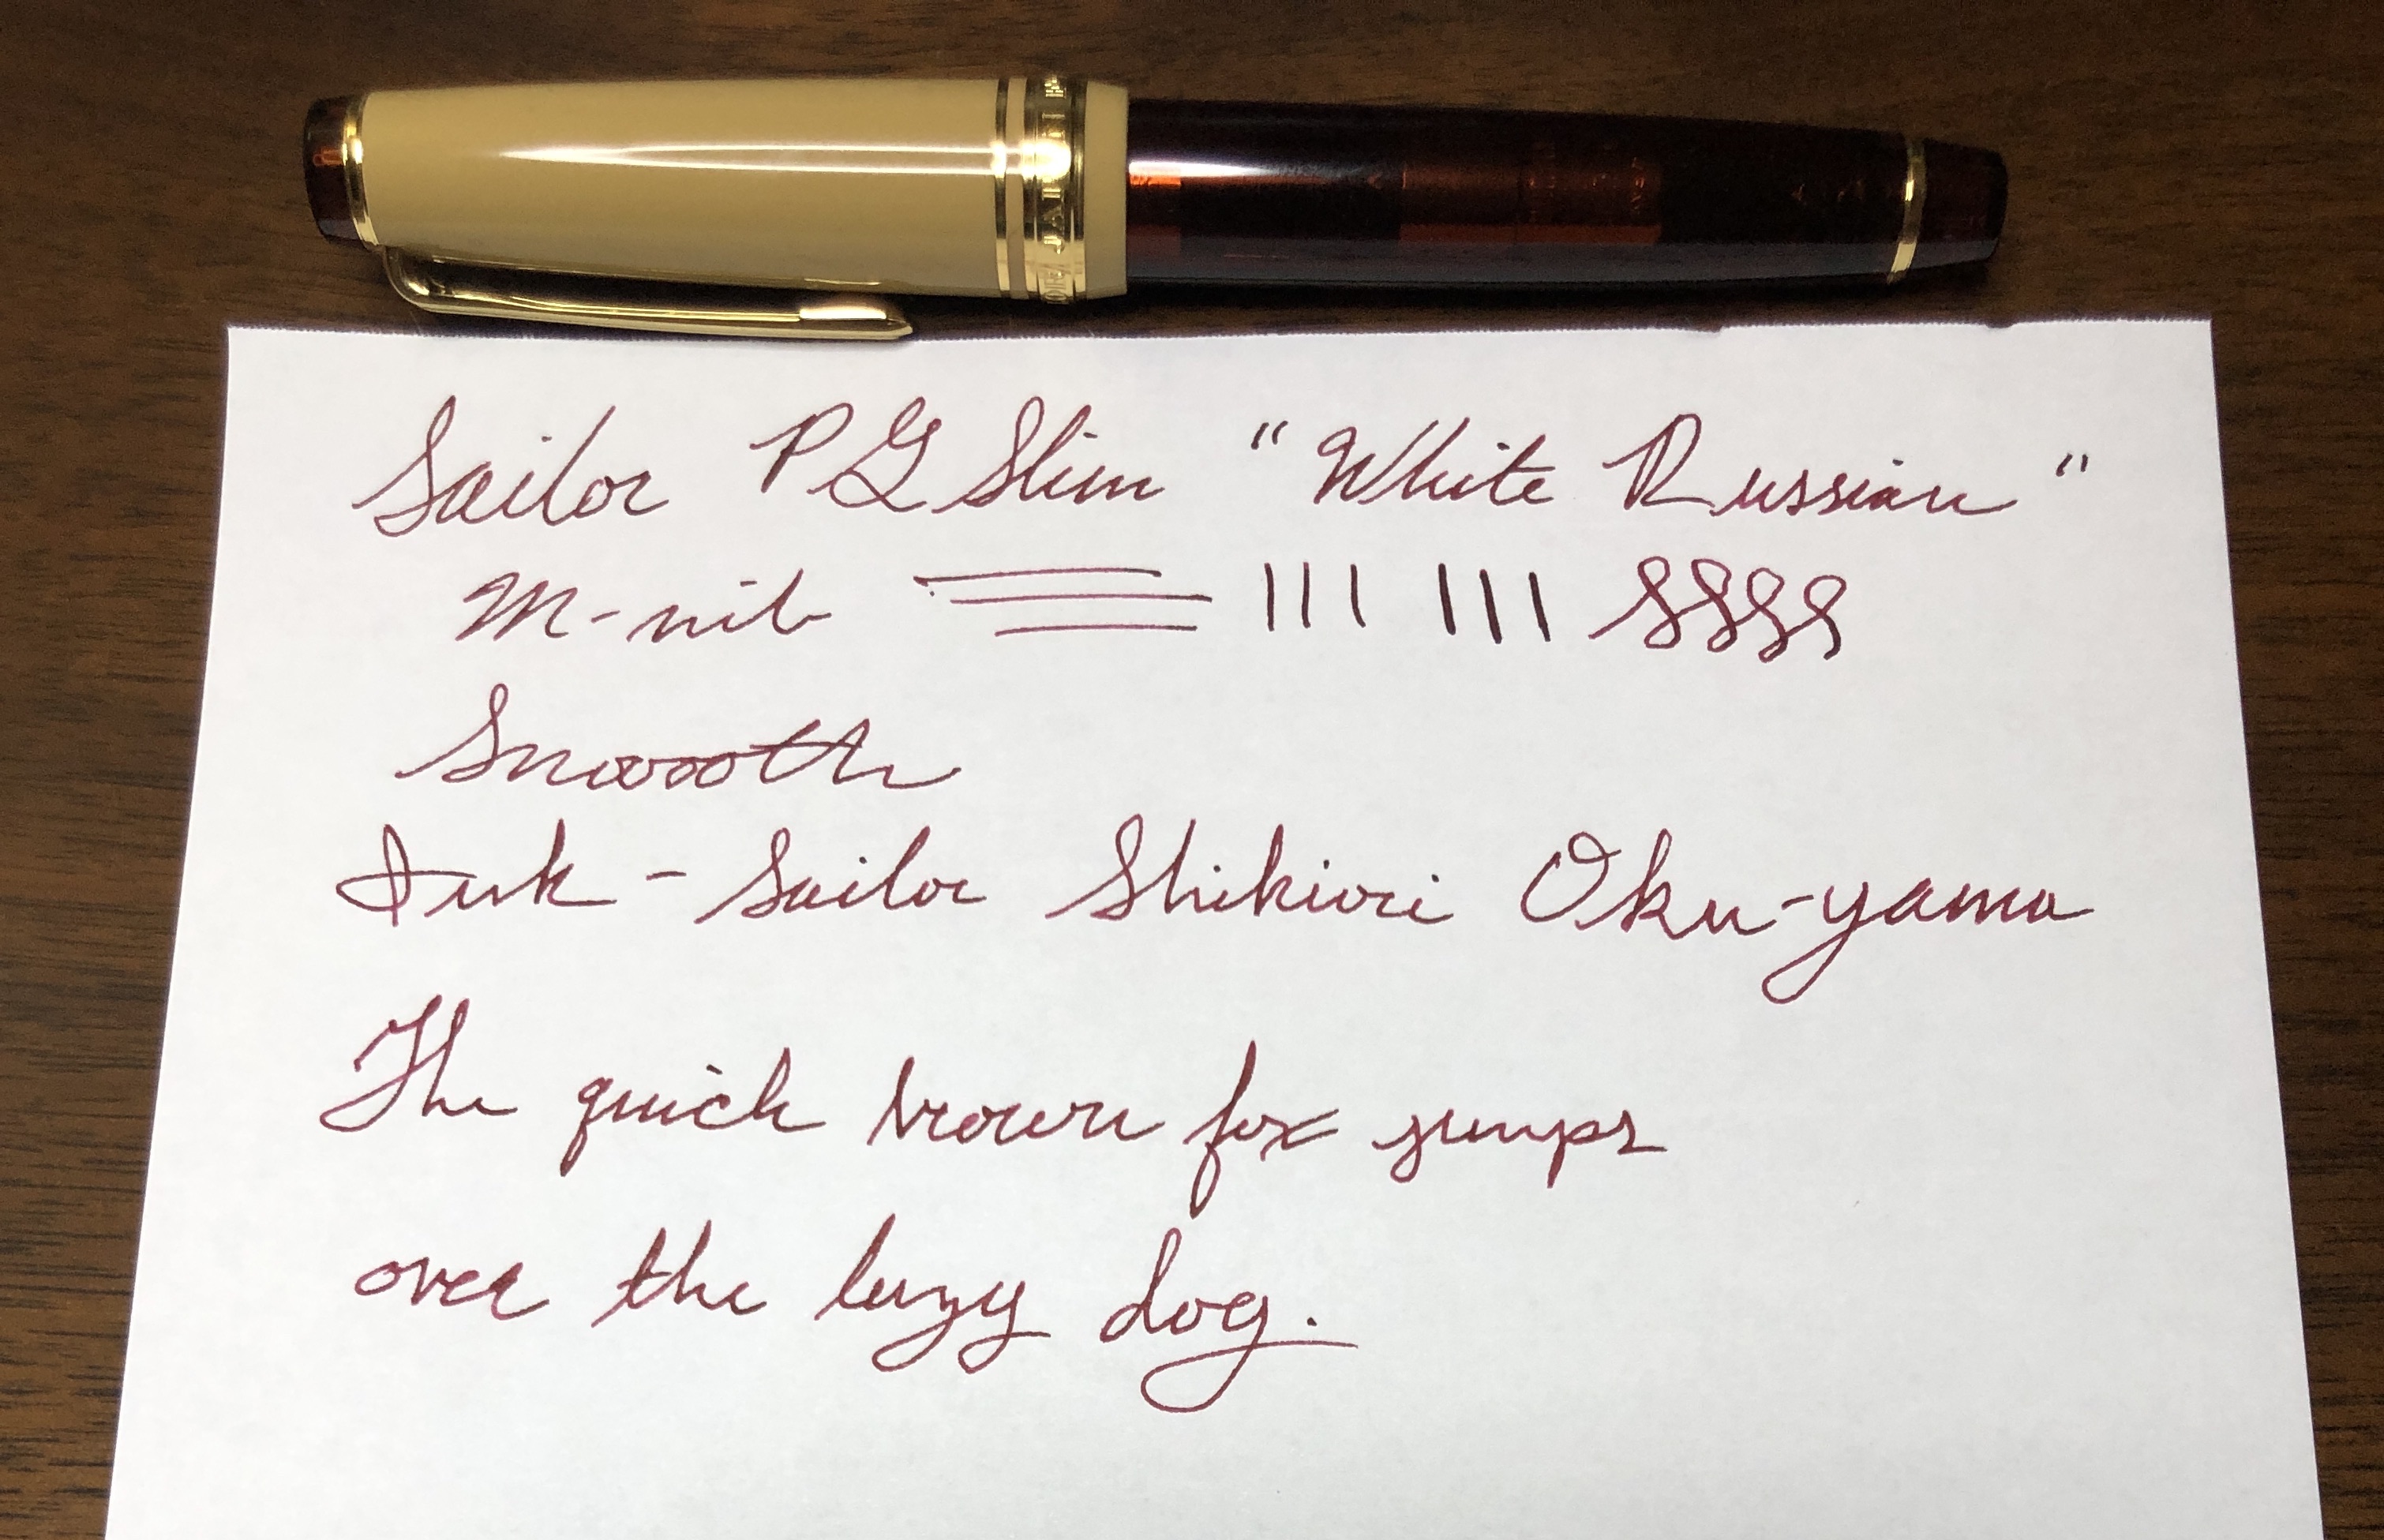 JAPAN
Sailor PG Slim "White Russian"
M-nib
Smoooth
Ink - Sailor Shikiori Oku-yama
The quick brown fox jumps
over the lazy dog.